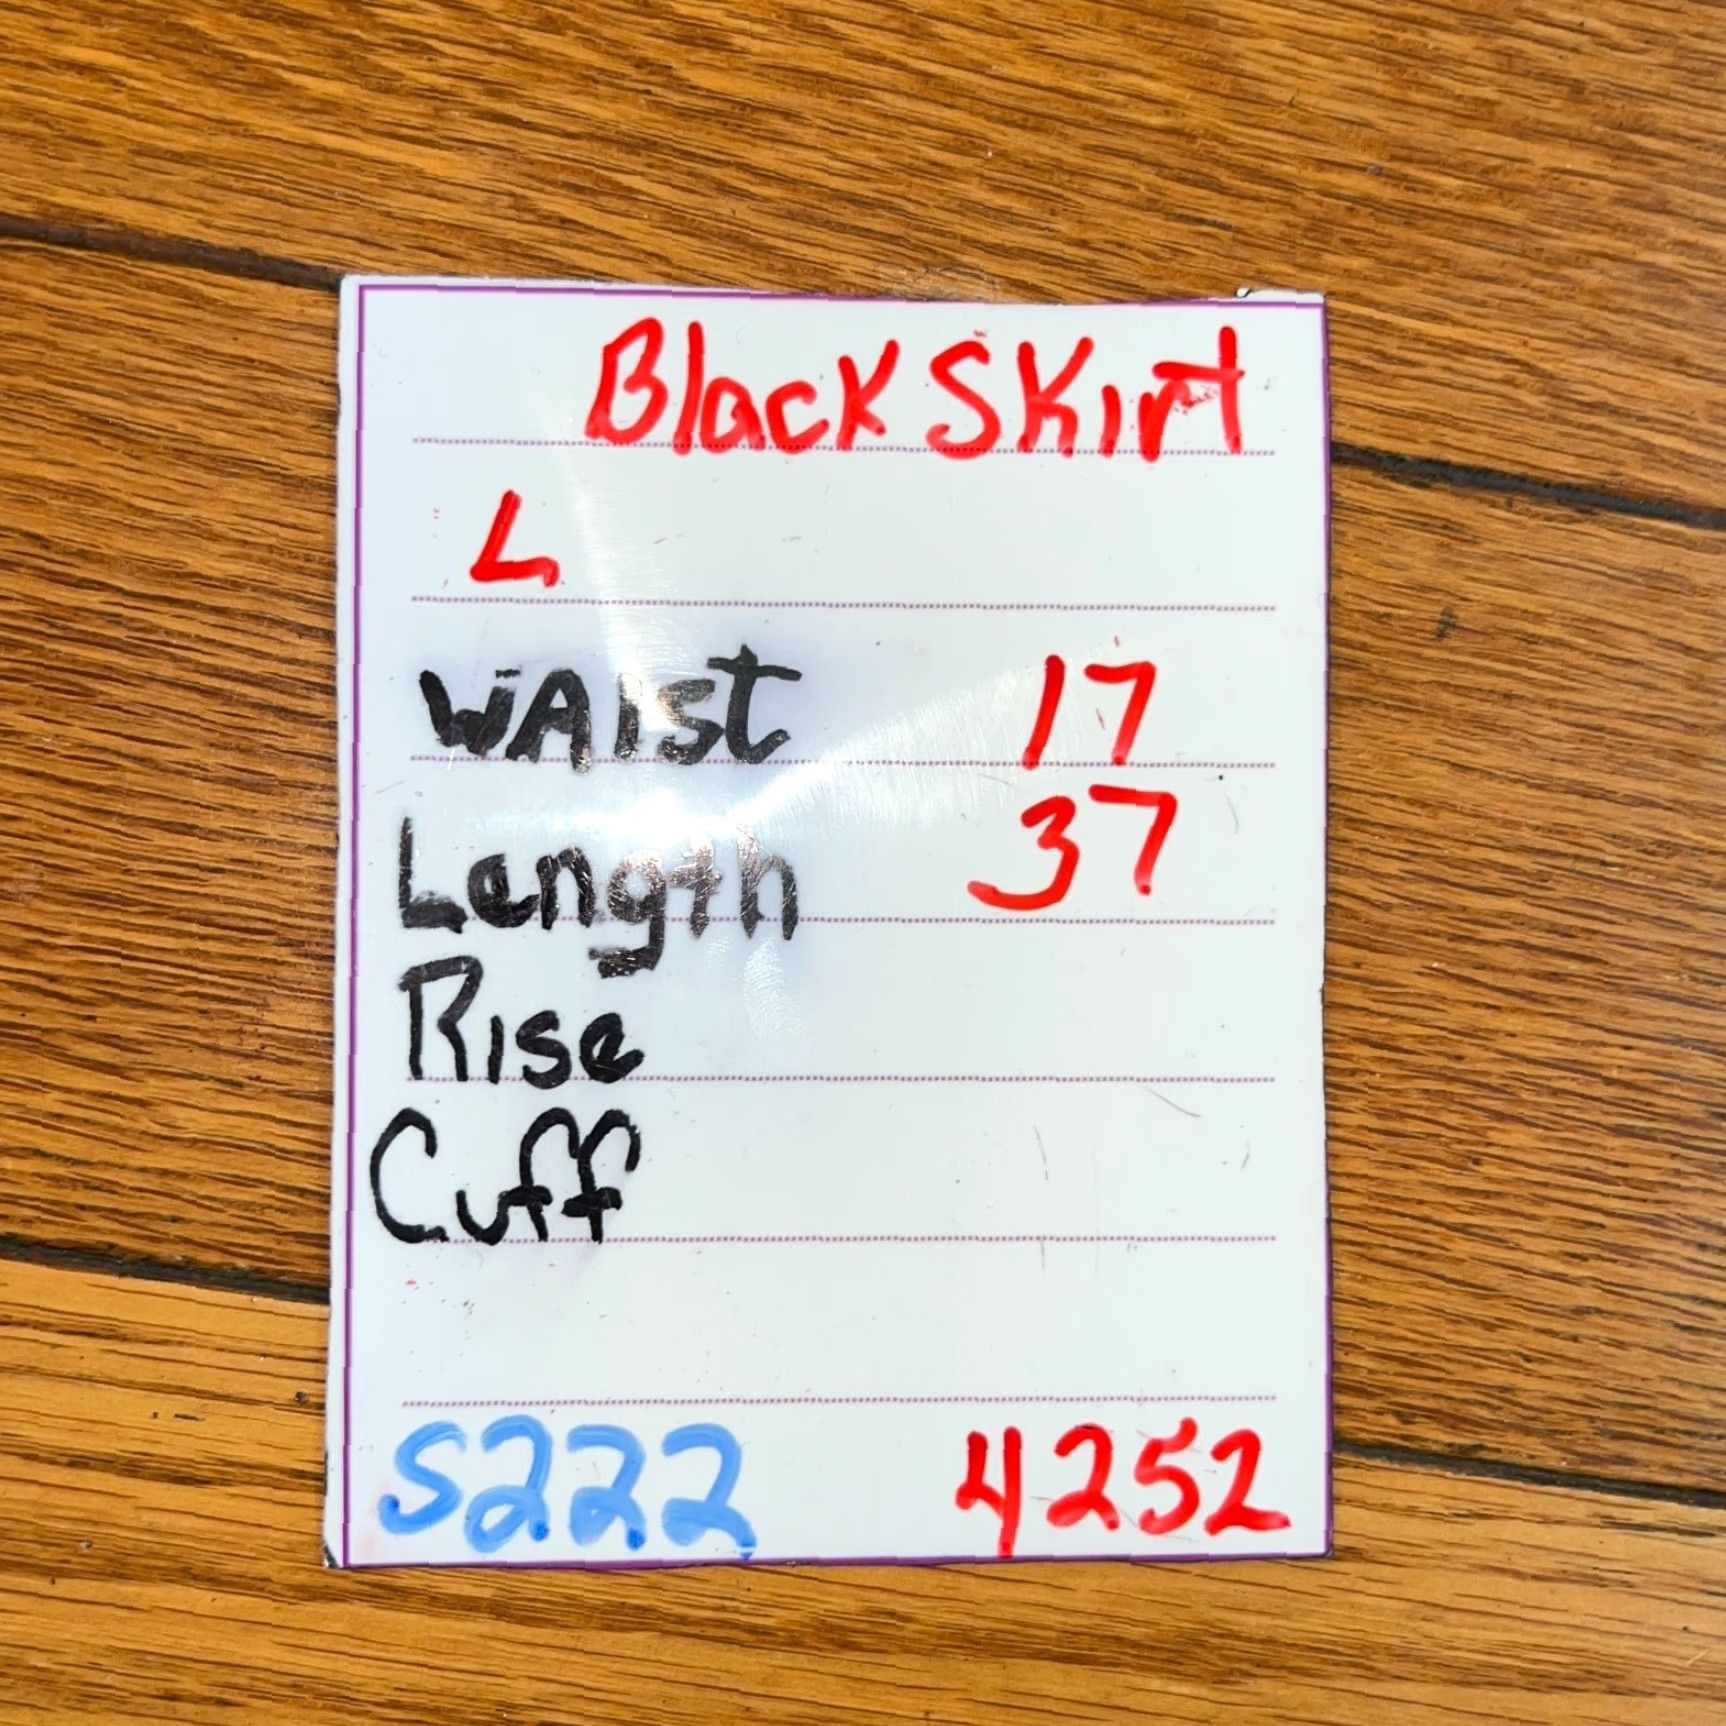 Black Skirt
L
Waist 17
Length 37
Rise
Cuff
S222 4252